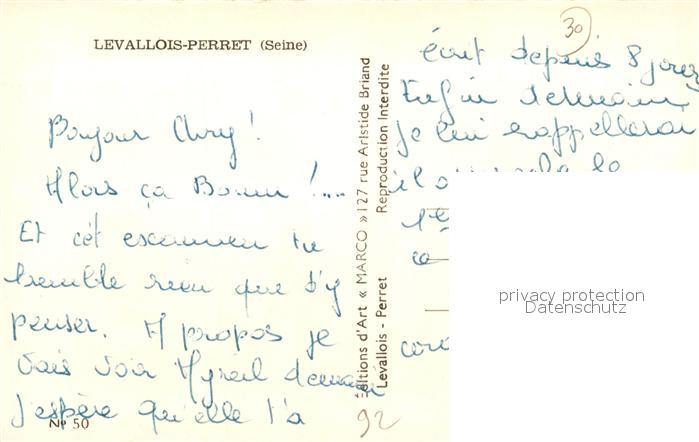 LEVALLOIS-PERRET (Seine)
Bonjour Chry !
Alors ça Boum !....
Et cet examen tu
tremble rien que d'y
penser. A propos je
vais voir Myreil demain
J'espère qu'elle t'a
Nº 50
Éditions d'Art « MARCO » 127 rue Aristide Briand
Levallois - Perret Reproduction Interdite
30
écrit depuis 8 jours
Enfin demain
je lui rappellerai
il
1
ca
92
privacy protection
Datenschutz